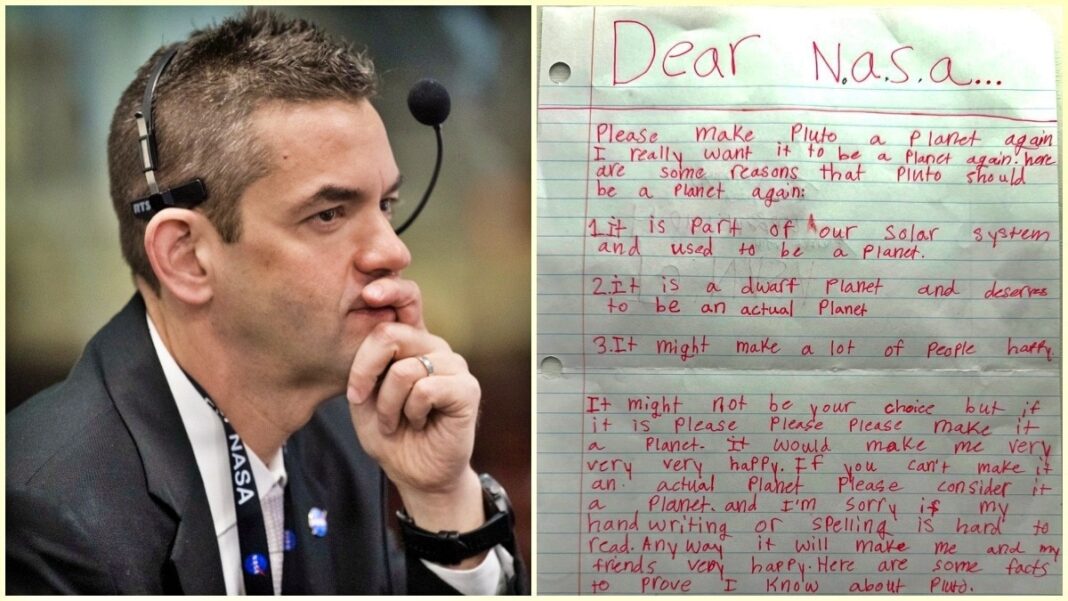 RTS
NASA
Dear N.a.s.a...
Please make Pluto a planet again
I really want it to be a planet again. here
are some reasons that Pluto should
be a planet again:
1.it is part of our solar system
and used to be a planet.
2.it is a dwarf planet and deserves
to be an actual planet
3.It might make a lot of people happy
It might not be your choice but if
it is please please please make it
a planet. it would make me very
very very happy. If you can't make it
an actual planet please consider it
a planet. and I'm sorry if my
hand writing or spelling is hard to
read. Any way it will make me and my
friends very happy. Here are some facts
to prove I know about Pluto.